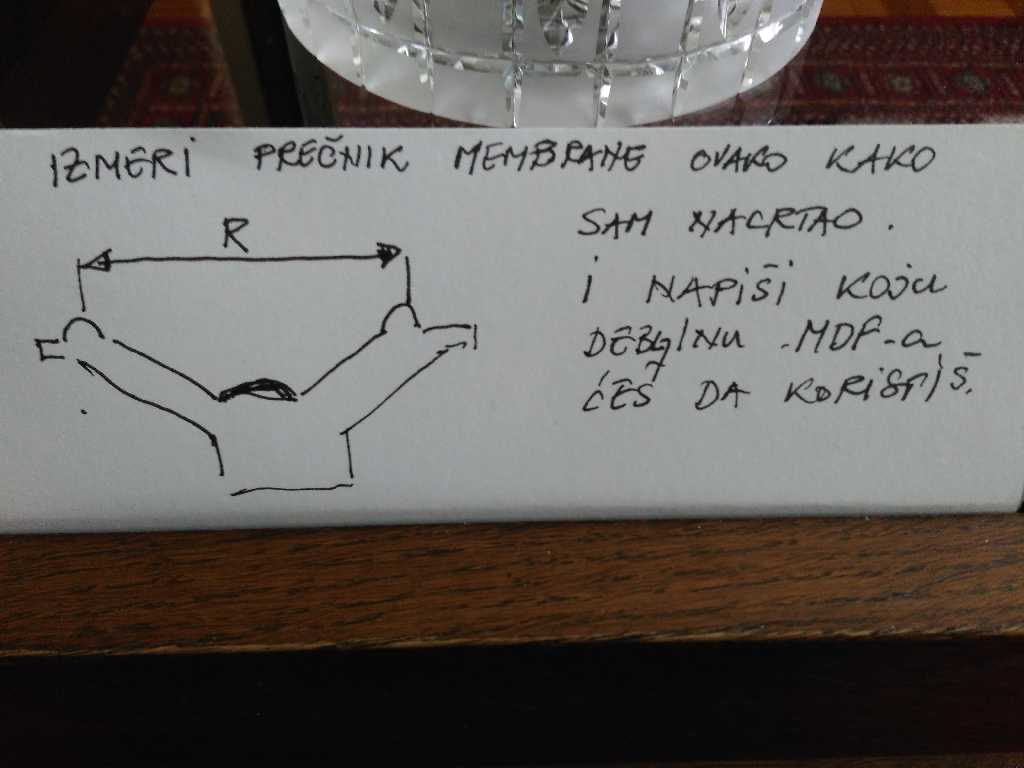 IZMERI PREČNIK MEMBRANE OVAKO KAKO
SAM NACRTAO.
R
I NAPIŠI KOJU
DEBLJINU MDF-a
ĆEŠ DA KORISTIŠ.